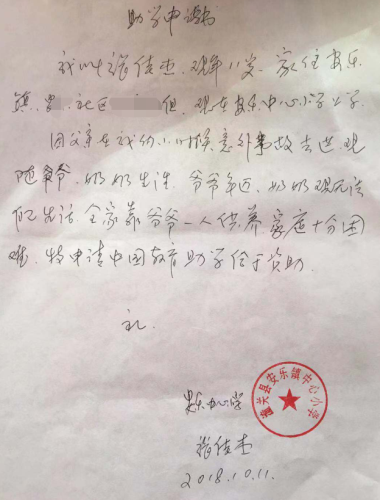 助学申请书
我叫张佳杰,现年11岁,家住安乐
镇 社区 组,现在安乐中心小学上学
因父亲在我幼小时候意外事故去逝,现
随爷爷、奶奶生活,爷爷年迈,奶奶现无法
生活 全家靠爷爷一人供养家庭十分困
难,特申请中国教育助学给于资助.
礼
安乐中心小学
张佳杰
2018.10.11.
潼关县安乐镇中心小学